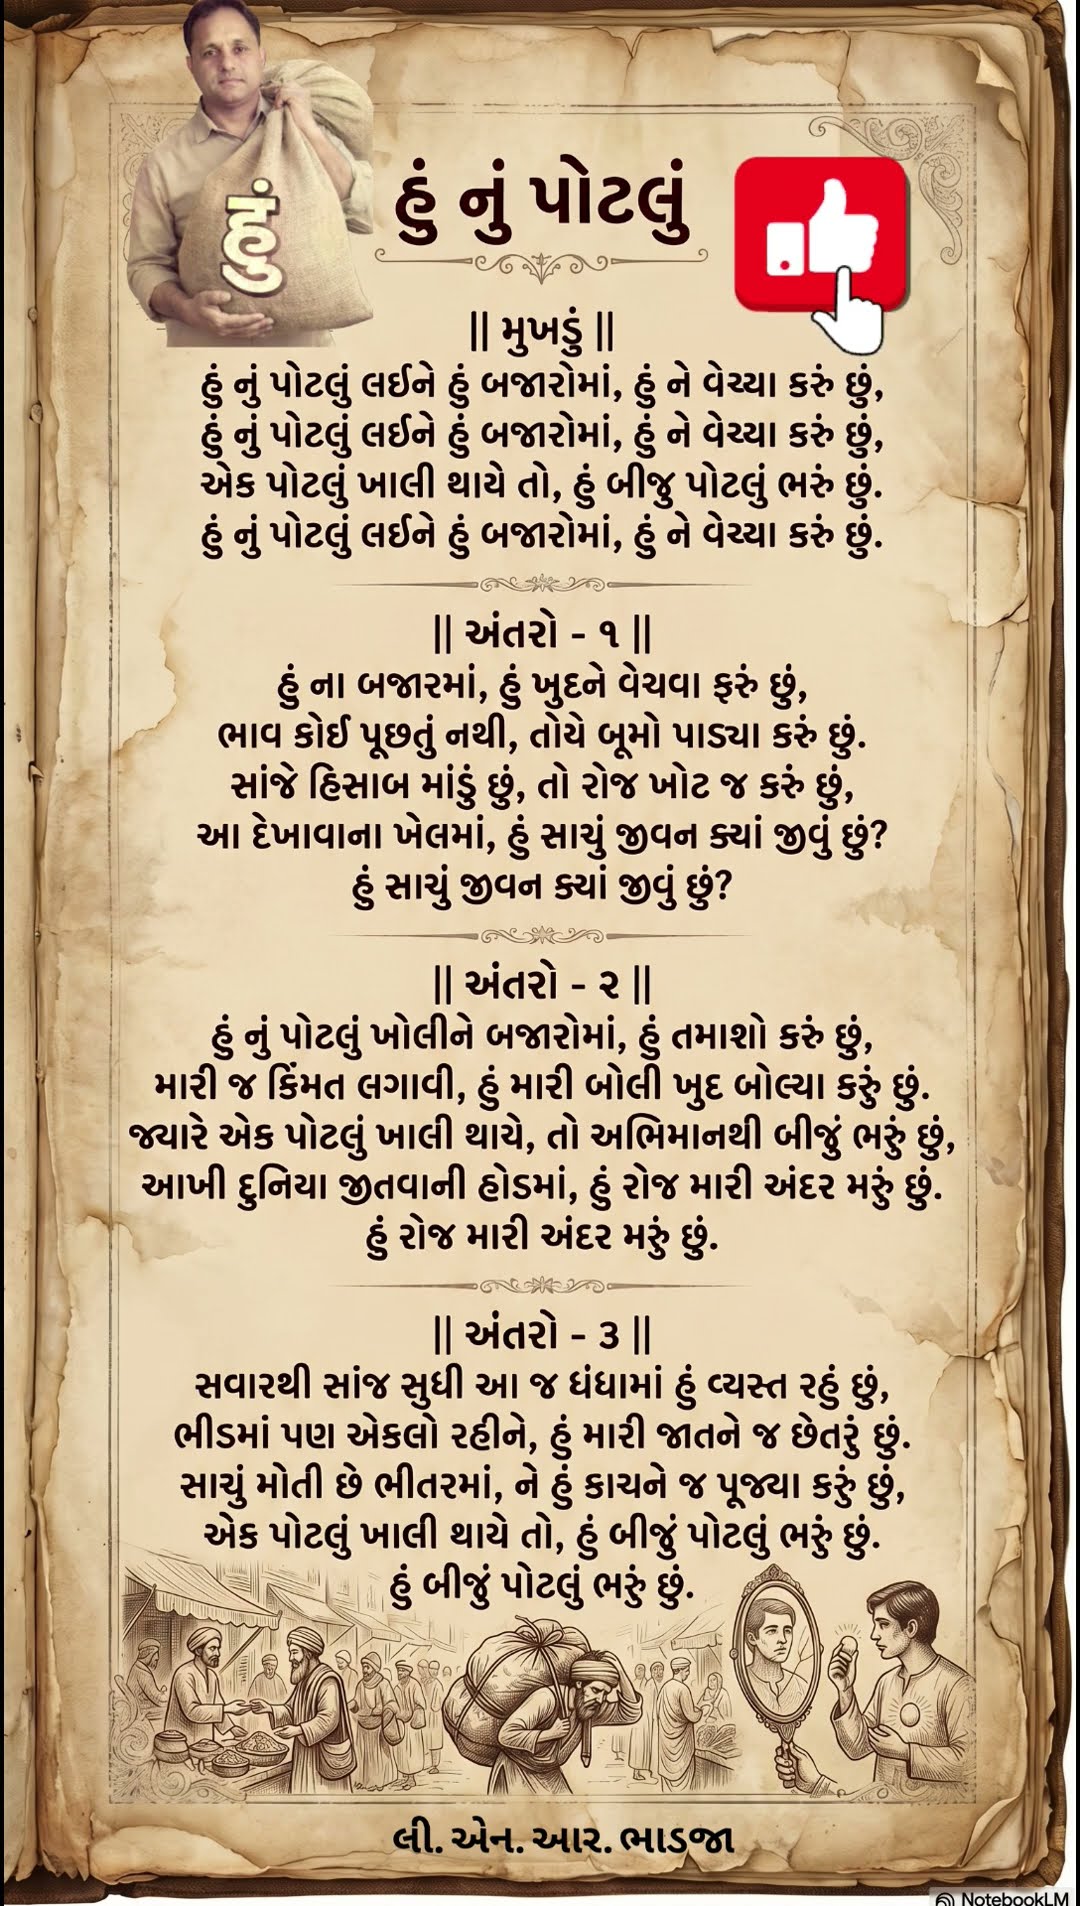 હું
હું નું પોટલું
|| મુખડું ||
હું નું પોટલું લઈને હું બજારોમાં, હું ને વેચ્યા કરું છું,
હું નું પોટલું લઈને હું બજારોમાં, હું ને વેચ્યા કરું છું,
એક પોટલું ખાલી થાયે તો, હું બીજુ પોટલું ભરું છું.
હું નું પોટલું લઈને હું બજારોમાં, હું ને વેચ્યા કરું છું.
|| અંતરો - ૧ ||
હું ના બજારમાં, હું ખુદને વેચવા ફરું છું,
ભાવ કોઈ પૂછતું નથી, તોયે બૂમો પાડ્યા કરું છું.
સાંજે હિસાબ માંડું છું, તો રોજ ખોટ જ કરું છું,
આ દેખાવાના ખેલમાં, હું સાચું જીવન ક્યાં જીવું છું?
હું સાચું જીવન ક્યાં જીવું છું?
|| અંતરો - ૨ ||
હું નું પોટલું ખોલીને બજારોમાં, હું તમાશો કરું છું,
મારી જ કિંમત લગાવી, હું મારી બોલી ખુદ બોલ્યા કરું છું.
જ્યારે એક પોટલું ખાલી થાયે, તો અભિમાનથી બીજું ભરું છું,
આખી દુનિયા જીતવાની હોડમાં, હું રોજ મારી અંદર મરું છું.
હું રોજ મારી અંદર મરું છું.
|| અંતરો - ૩ ||
સવારથી સાંજ સુધી આ જ ધંધામાં હું વ્યસ્ત રહું છું,
ભીડમાં પણ એકલો રહીને, હું મારી જાતને જ છેતરું છું.
સાચું મોતી છે ભીતરમાં, ને હું કાચને જ પૂજ્યા કરું છું,
એક પોટલું ખાલી થાયે તો, હું બીજું પોટલું ભરું છું.
હું બીજું પોટલું ભરું છું.
લી. એન. આર. ભાડજા
NotebookLM